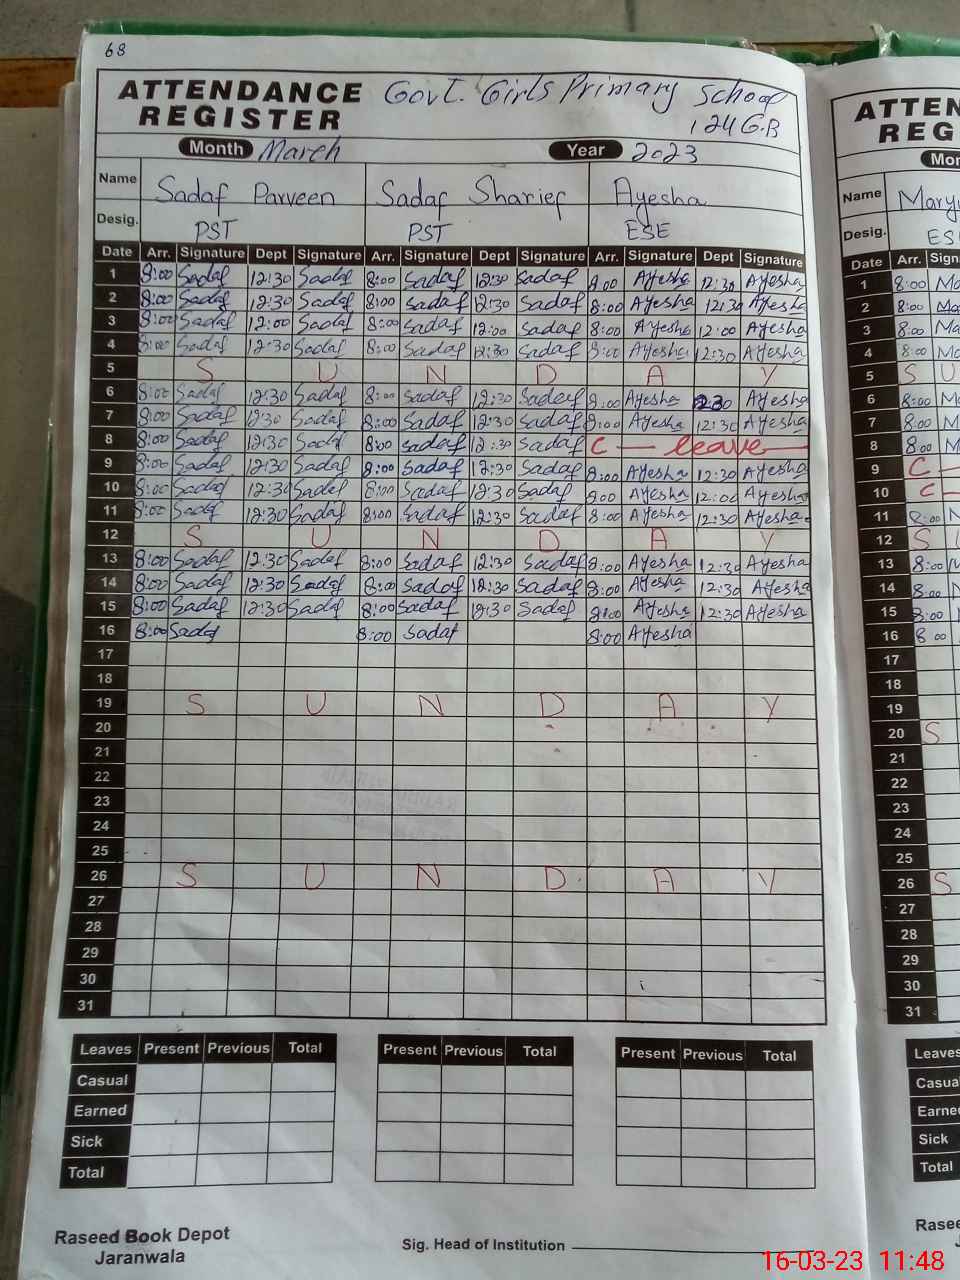 68
ATTENDANCE REGISTER Govt. Girls Primary School
124 G.B
Month March Year 2023
Name Sadaf Parveen Sadaf Sharief Ayesha
Desig. PST PST ESE
Date Arr. Signature Dept Signature Arr. Signature Dept Signature Arr. Signature Dept Signature
1 8:00 Sadaf 12:30 Sadaf 8:00 Sadaf 12:30 Sadaf 8:00 Ayesha 12:30 Ayesha
2 8:00 Sadaf 12:30 Sadaf 8:00 Sadaf 12:30 Sadaf 8:00 Ayesha 12:30 Ayesha
3 8:00 Sadaf 12:00 Sadaf 8:00 Sadaf 12:00 Sadaf 8:00 Ayesha 12:00 Ayesha
4 8:00 Sadaf 12:30 Sadaf 8:00 Sadaf 12:30 Sadaf 8:00 Ayesha 12:30 Ayesha
5 S U N D A Y
6 8:00 Sadaf 12:30 Sadaf 8:00 Sadaf 12:30 Sadaf 8:00 Ayesha Ayesha
7 8:00 Sadaf 12:30 Sadaf 8:00 Sadaf 12:30 Sadaf 8:00 Ayesha 12:30 Ayesha
8 8:00 Sadaf 12:30 Sadaf 8:00 Sadaf 12:30 Sadaf C — leave —
9 8:00 Sadaf 12:30 Sadaf 8:00 Sadaf 12:30 Sadaf 8:00 Ayesha 12:30 Ayesha
10 8:00 Sadaf 12:30 Sadaf 8:00 Sadaf 12:30 Sadaf 8:00 Ayesha 12:00 Ayesha
11 8:00 Sadaf 12:30 Sadaf 8:00 Sadaf 12:30 Sadaf 8:00 Ayesha 12:30 Ayesha
12 S U N D A Y
13 8:00 Sadaf 12:30 Sadaf 8:00 Sadaf 12:30 Sadaf 8:00 Ayesha 12:30 Ayesha
14 8:00 Sadaf 12:30 Sadaf 8:00 Sadaf 12:30 Sadaf 8:00 Ayesha 12:30 Ayesha
15 8:00 Sadaf 12:30 Sadaf 8:00 Sadaf 12:30 Sadaf 8:00 Ayesha 12:30 Ayesha
16 8:00 Sadaf 8:00 Sadaf 8:00 Ayesha
17
18
19 S U N D A Y
20
21
22
23
24
25
26 S U N D A Y
27
28
29
30
31
Leaves Present Previous Total Present Previous Total Present Previous Total
Casual
Earned
Sick
Total
Raseed Book Depot
Jaranwala
Sig. Head of Institution
Name
Desig.
Date Arr.
1 8:00
2 8:00
3 8:00
4 8:00
5 S U
6 8:00
7 8:00
8 8:00
9 C
10 C
11 8:00
12 S
13 8:00
14 8:00
15 8:00
16 8 00
17
18
19
20 S
21
22
23
24
25
26 S
27
28
29
30
31
Leaves
Earned
Sick
Total
16-03-23 11:48